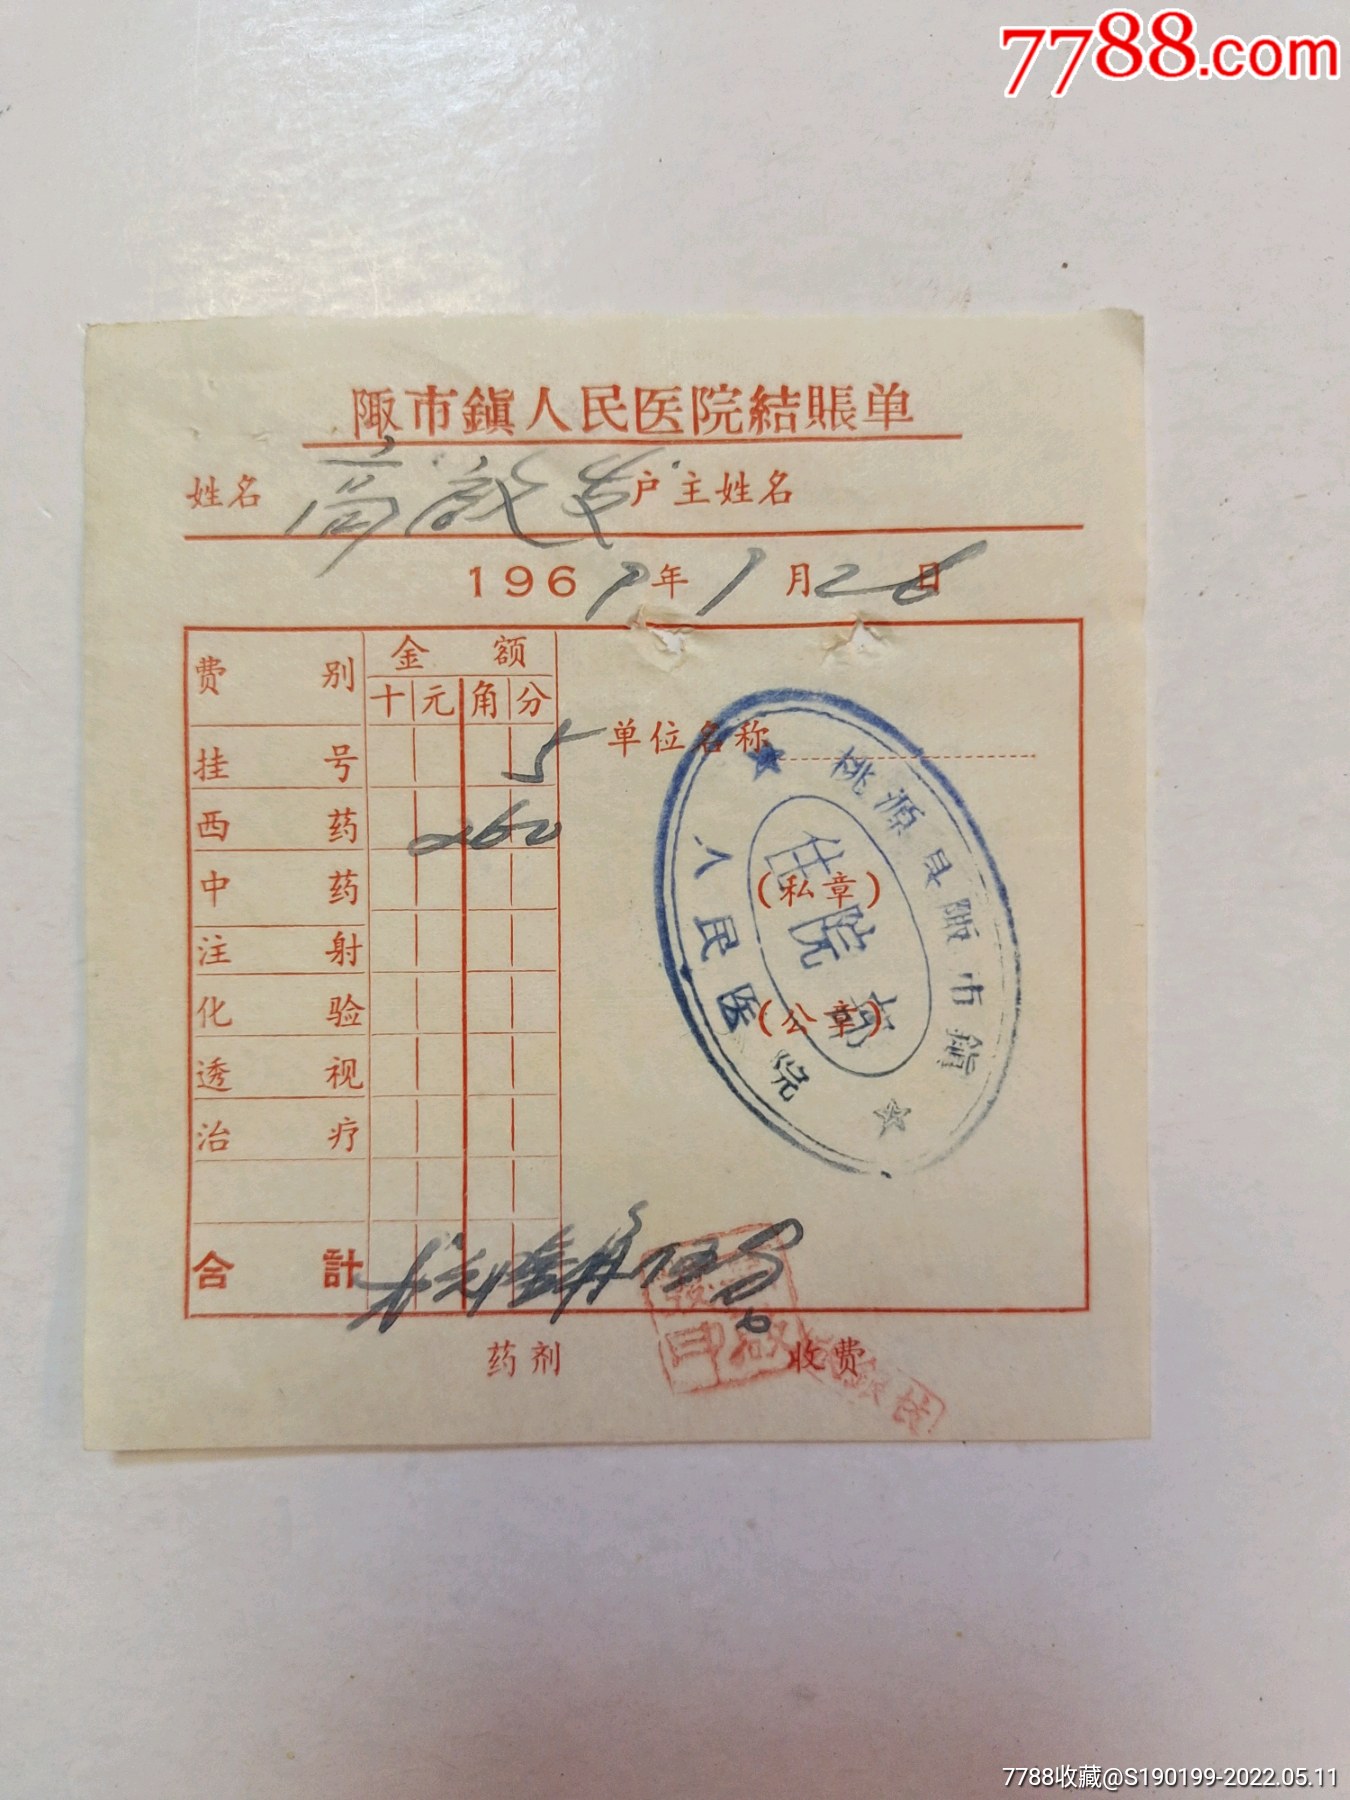 7788.com
陬市鎮人民医院結賬单
姓名 高 户主姓名
1967年1月26日
費别 金额 单位名称
十 元 角 分
挂号 5
西药 260
中药 (私章)
注射
化验 (公章)
透视
治疗
合計 元 角伍分
药剂 收费
桃源县陬市鎮
人民医院
住院部
7788收藏@S190199-2022.05.11